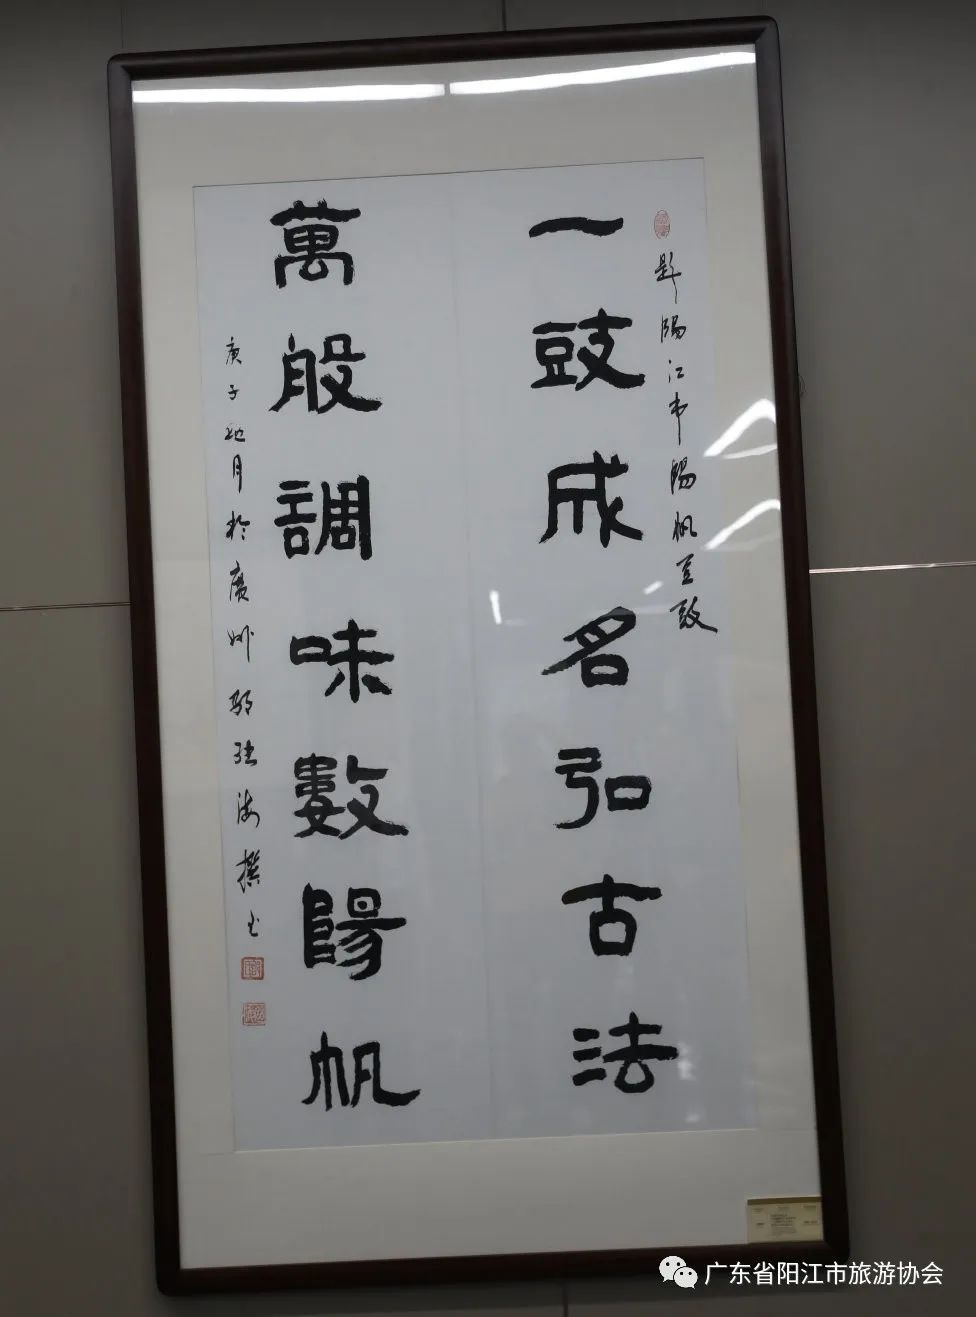 題陽江市陽帆豆豉
一豉成名弘古法
萬般調味數陽帆
庚子秋月於廣州 撰书
广东省阳江市旅游协会